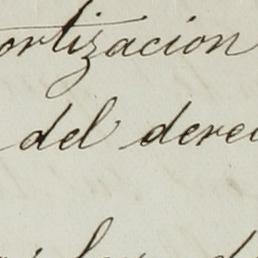 ortizacion
del derec